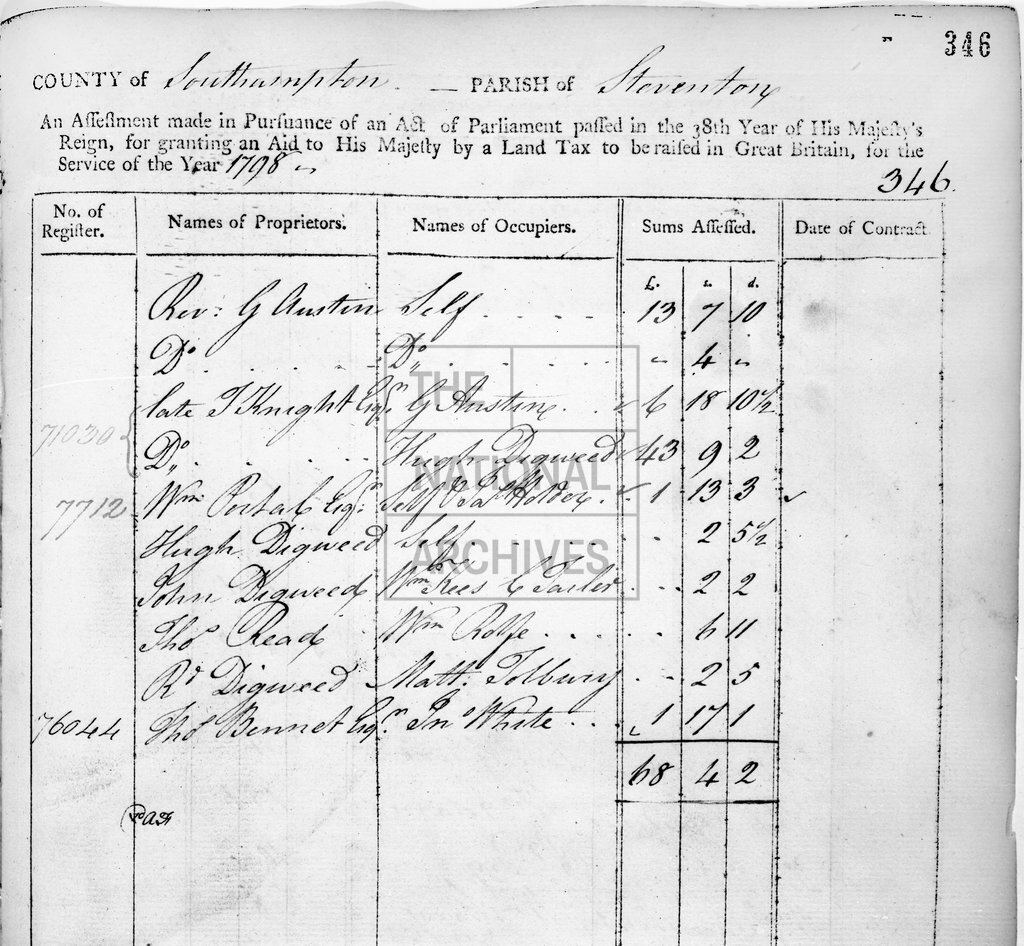 346
COUNTY of Southampton. — PARISH of Steventon
An Assessment made in Pursuance of an Act of Parliament passed in the 38th Year of His Majesty's
Reign, for granting an Aid to His Majesty by a Land Tax to be raised in Great Britain, for the
Service of the Year 1798
346.
No. of Register. Names of Proprietors. Names of Occupiers. Sums Assessed. Date of Contract.
£. s. d.
Rev: G Austin Self . . . . 13 7 10
Do . . . . Do . . . . " 4 "
late T Knight Esqr G Austin . . 6 18 10½
71030 Do . . . . Hugh Digweed 43 9 2
7712 Wm Portal Esqr Self & Holder . 1 13 3
Hugh Digweed Self . . . . 2 5½
John Digweed Wm Rees & Tailor . . . 2 2
Thos Read Wm Rolfe . . . . 6 11
Rd Digweed Matt. Tolbury . . 2 5
76044 Thos Bennet Esqr Jno White . . 1 17 1
68 4 2
THE
NATIONAL
ARCHIVES